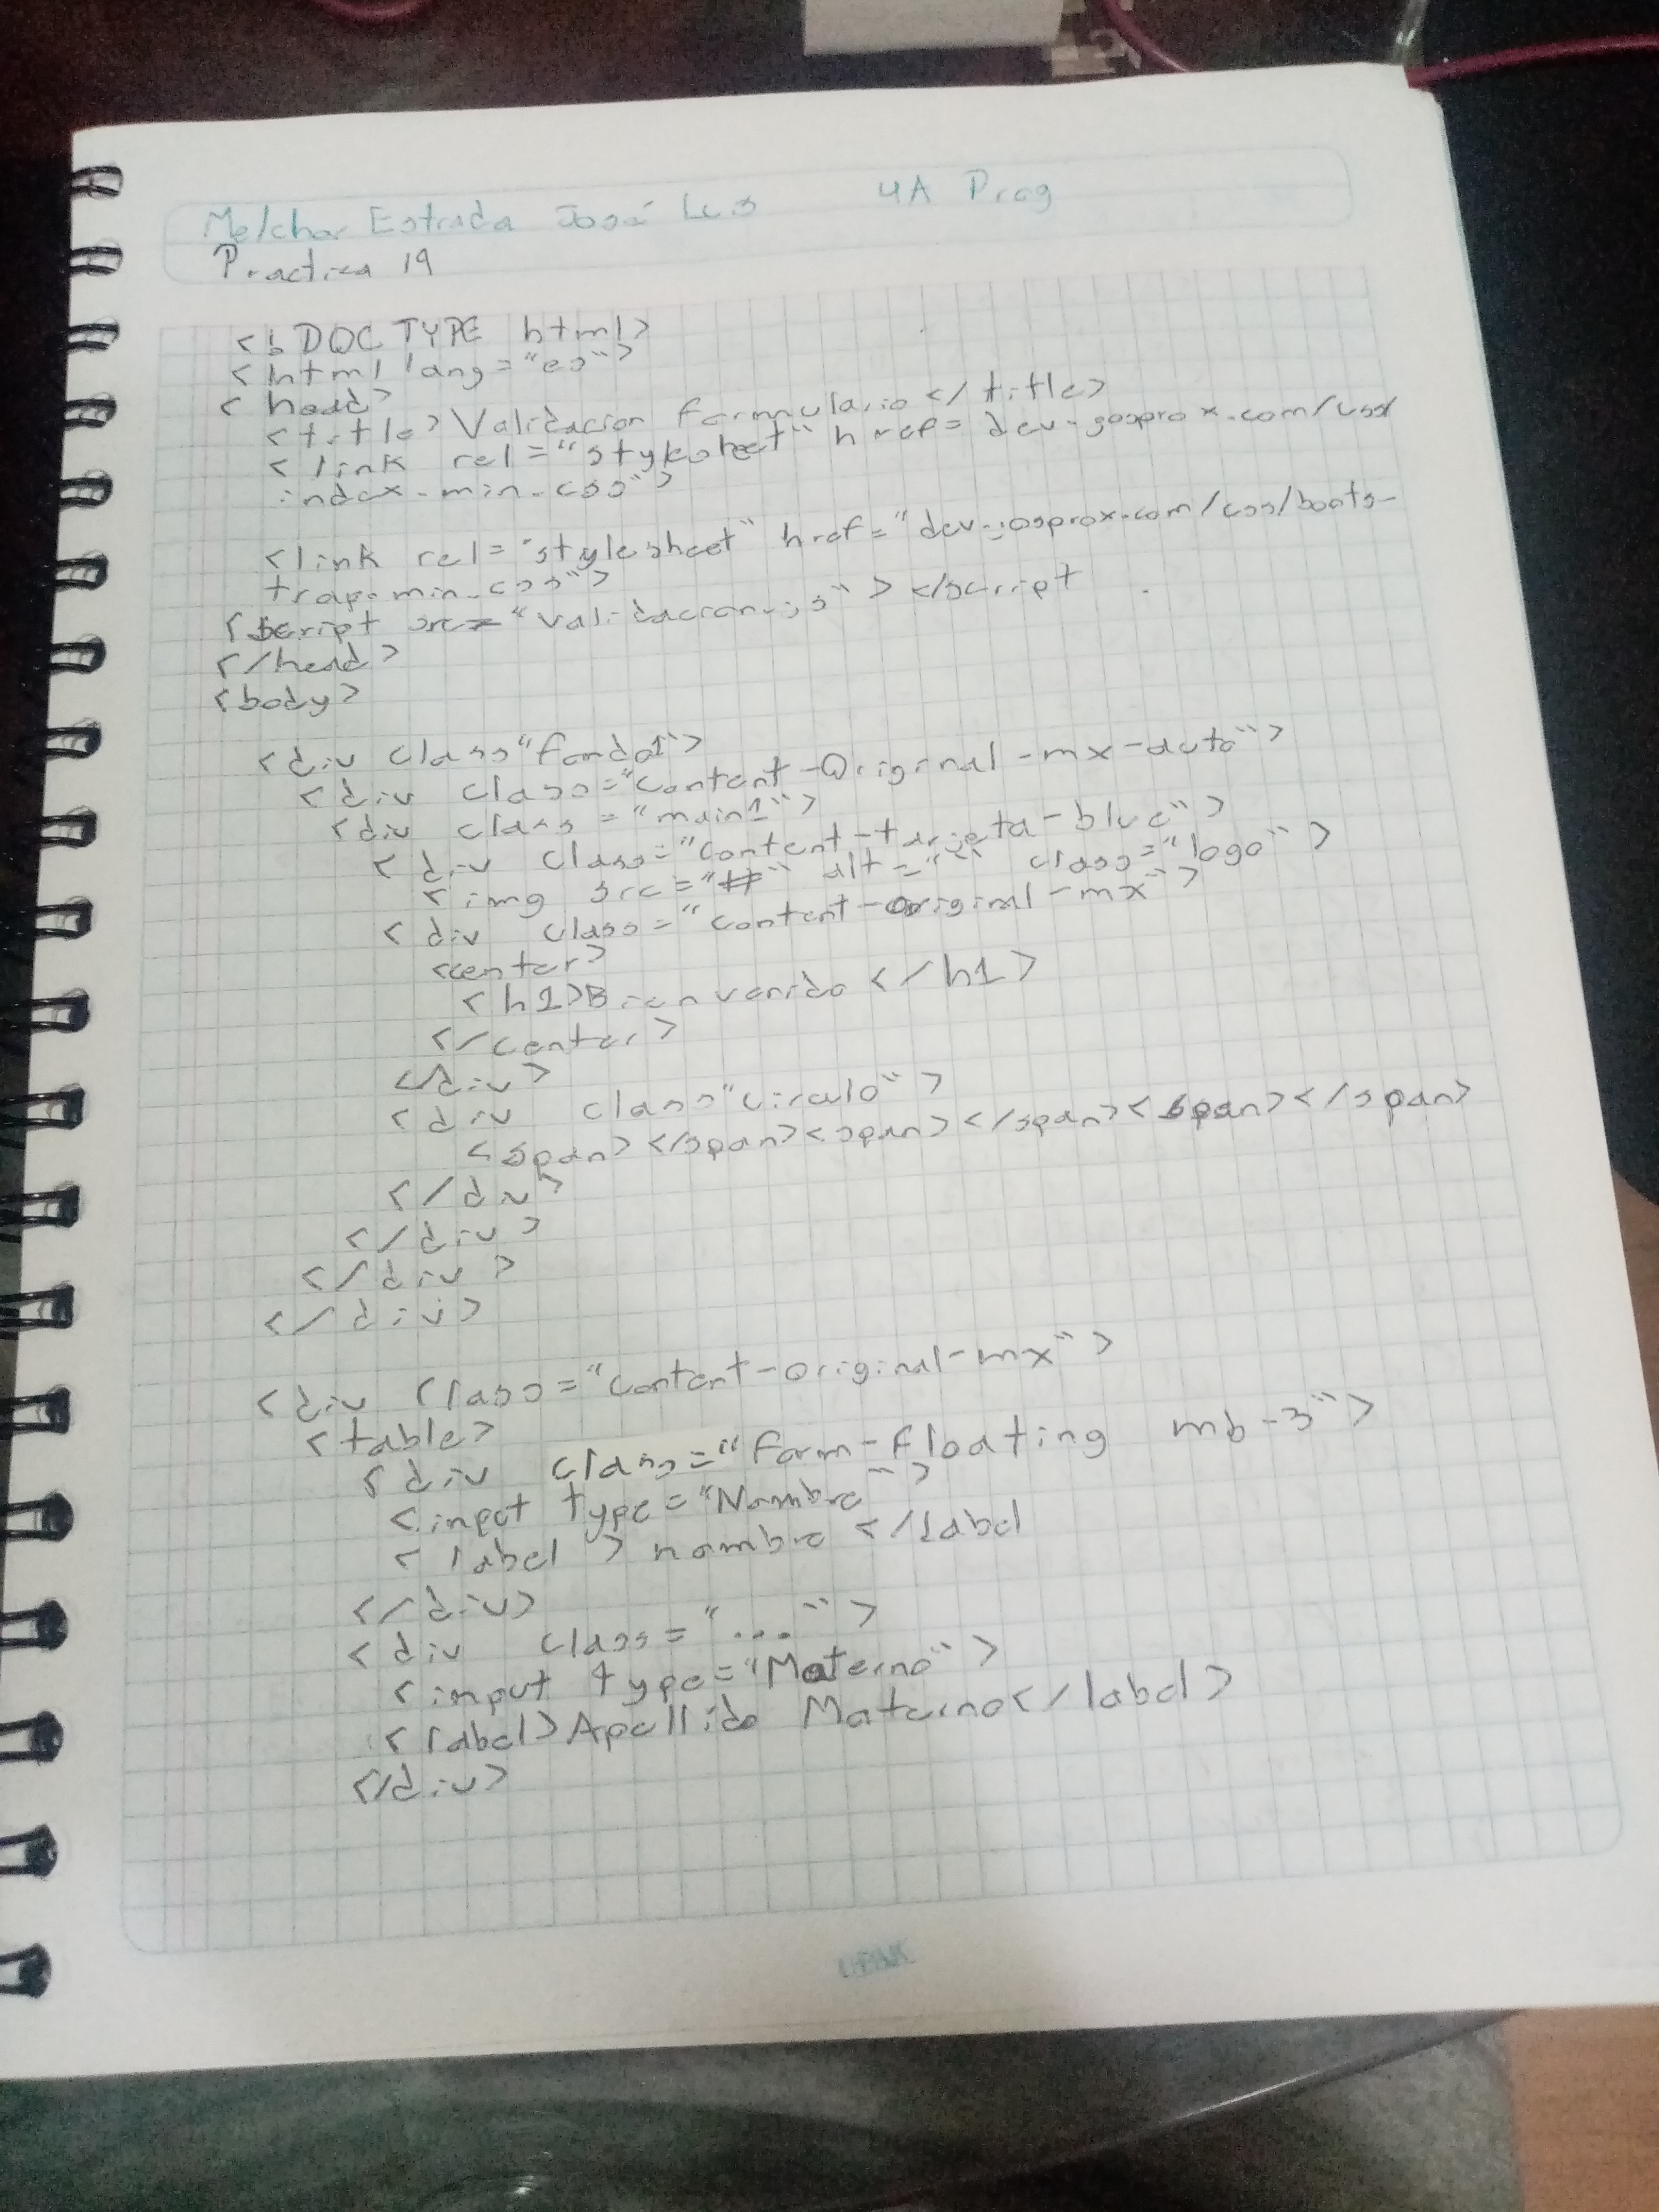 Melchor Estrada José Luis 4A Prog
Practica 19
<!DOCTYPE html>
<html lang="es">
<head>
<title>Validacion formulario</title>
<link rel="stylesheet" href= dev-josprox.com/css/
index-min-css">
<link rel="stylesheet" href="dev-josprox.com/css/boots-
trap-min-css">
<script src="validacion.js"></script
</head>
<body>
<div class"fondo1">
<div class="content-Original-mx-auto">
<div class="main1">
<div class="content-tarjeta-blue">
<img src="#" alt="" class="logo">
<div class="content-original-mx">
<center>
<h1>Bienvenido</h1>
</center>
</div>
<div class"circulo">
<span></span><span></span><span></span>
</div>
</div>
</div>
</div>
<div class="content-original-mx">
<table>
<div class="form-floating mb-3">
<input type="Nombre">
<label>nombre</label
</div>
<div class="...">
<input type="Materno">
<label>Apellido Materno</label>
</div>